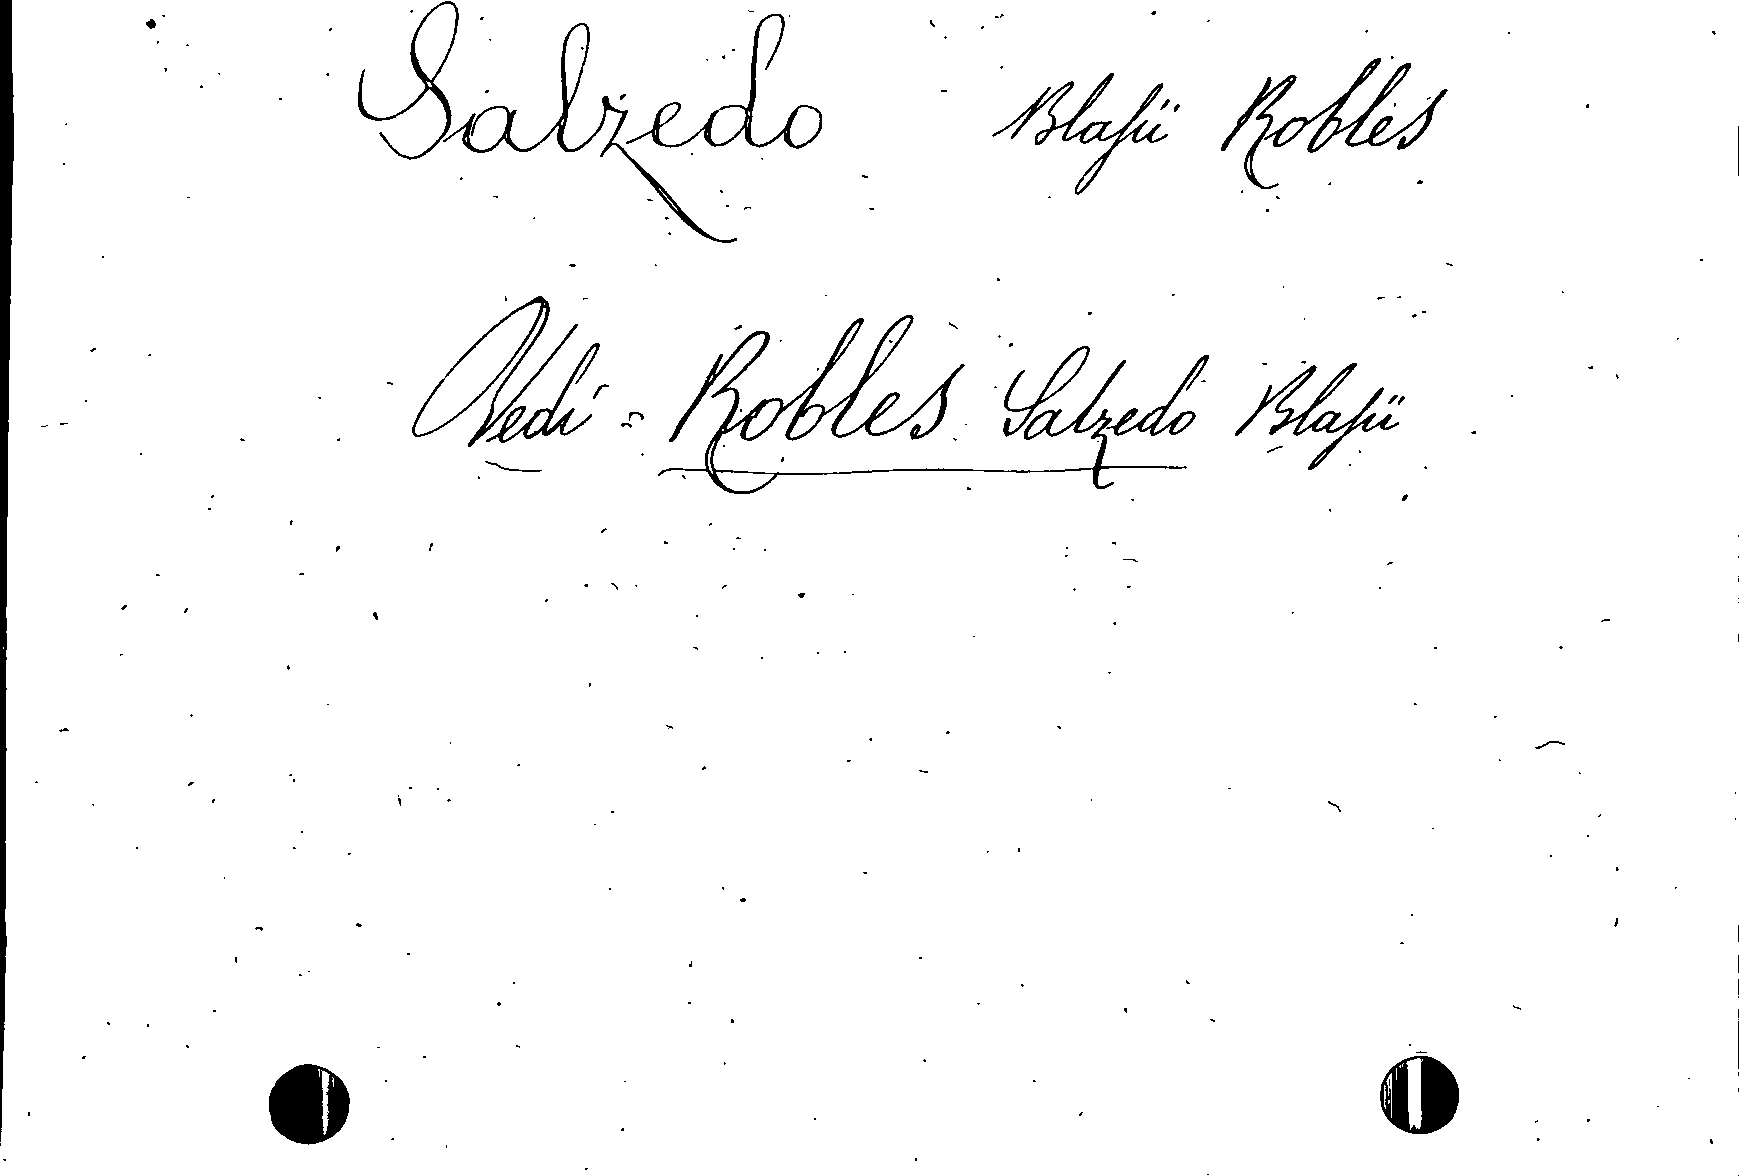 Salzedo Blasii Robles
Vedi = Robles Salzedo Blasii